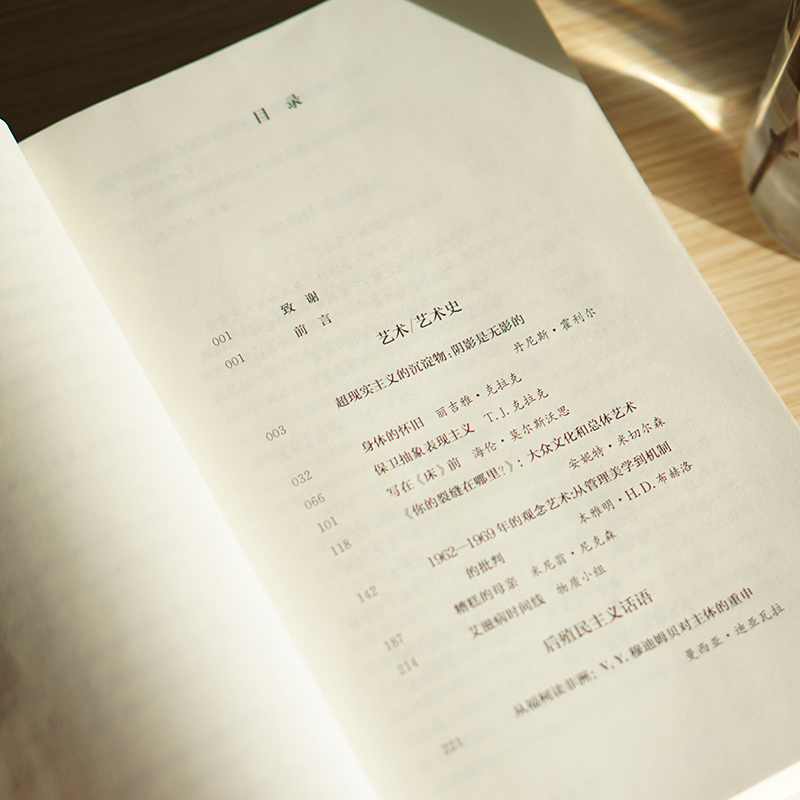 目 录
001 致 谢
001 前 言
艺术/艺术史
超现实主义的沉淀物：阴影是无影的
003 丹尼斯·霍利尔
032 身体的怀旧 丽吉雅·克拉克
066 保卫抽象表现主义 T.J.克拉克
101 写在《床》前 海伦·莫尔斯沃思
118 《你的裂缝在哪里？》：大众文化和总体艺术
安妮特·米切尔森
142 1962—1969年的观念艺术：从管理美学到机制
的批判 本雅明·H.D.布赫洛
187 糟糕的母亲 米尼翁·尼克森
214 艾滋病时间线 物质小组
后殖民主义话语
221 从福柯读非洲：V.Y.穆迪姆贝对主体的重申
曼西亚·迪亚瓦拉